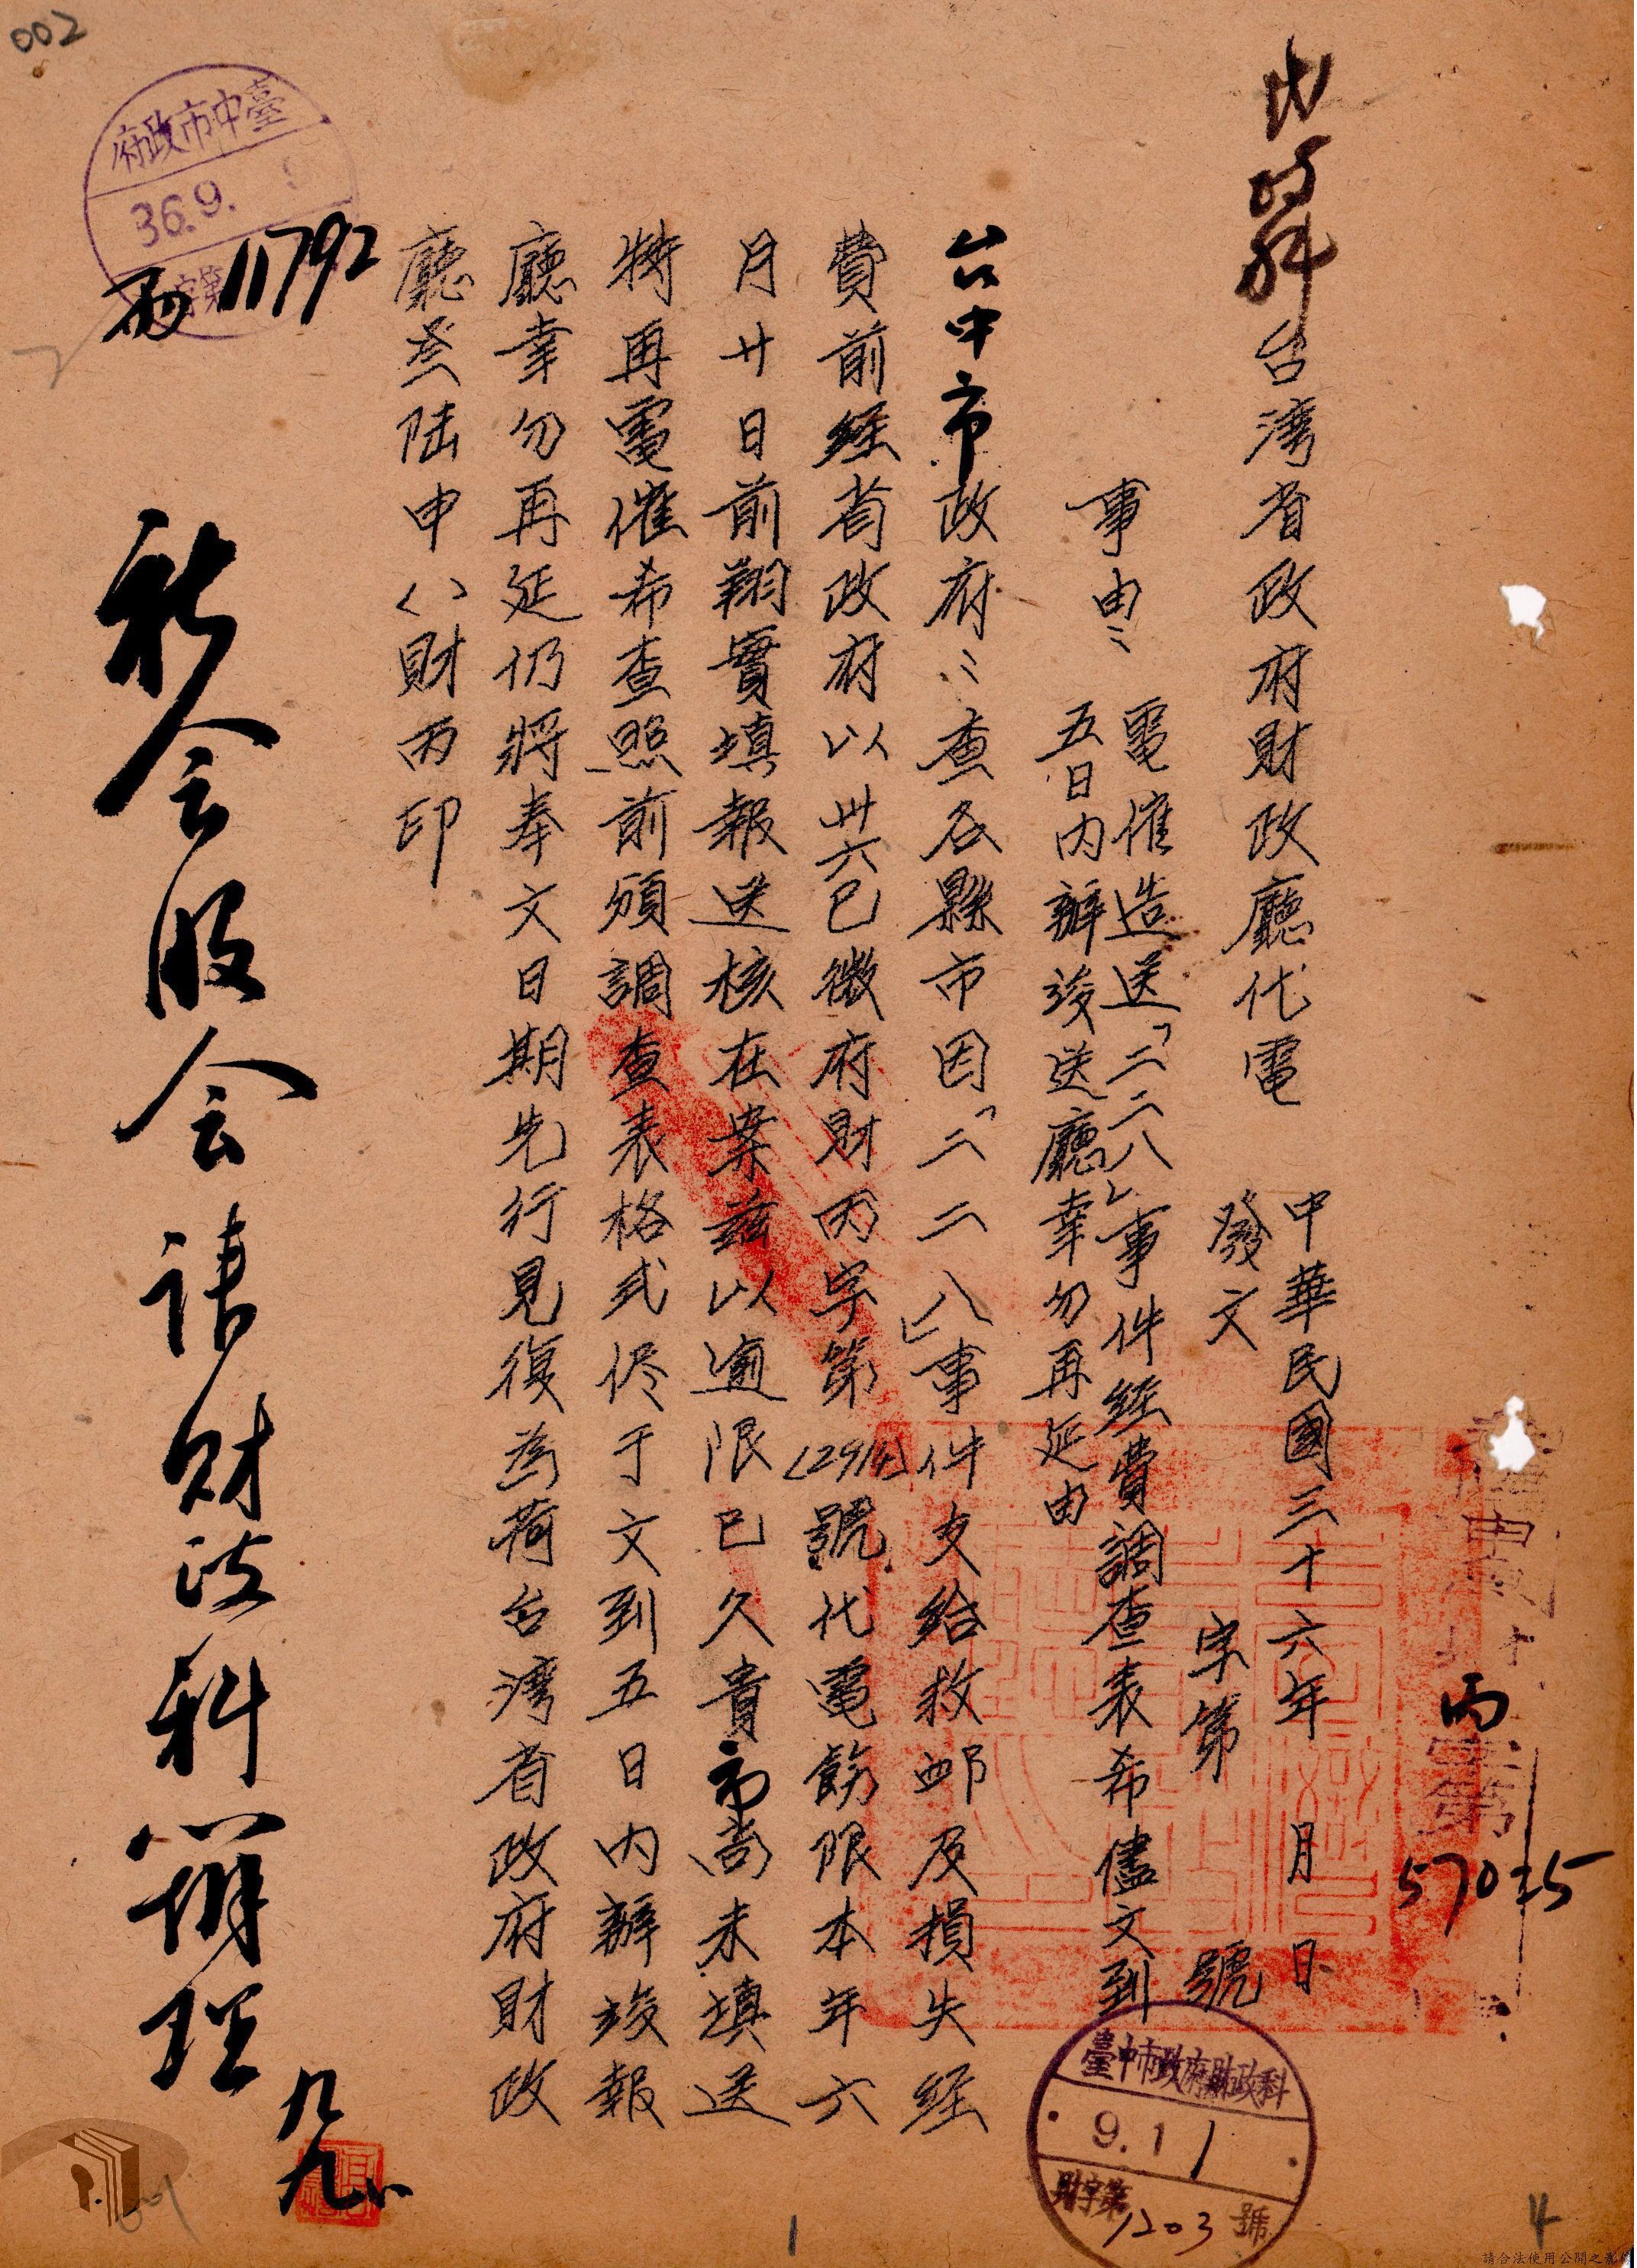 002
臺中市政府
36.9.
字第
11792
台湾省政府財政廳代電
中華民國三十六年 月 日
發文 字第 號
丙
字第
57025
事由:電催造送「二二八」事件經費調查表希儘文到
五日内辦竣送廳幸勿再延由
台中市政府:查各縣市因「二二八」事件支給救邮及損失經
費前經省政府以卅六巳徵府財丙字第(2914)號代電飭限本年六
月廿日前翔實填報送核在案兹以逾限已久貴市尚未填送
特再電催希查照前頒調查表格式侭于文到五日内辦竣報
廳幸勿再延仍將奉文日期先行見復為荷台湾省政府財政
廳叁陆申(八)財丙印
會股會請財政科辦理
九九
臺中市政府財政科
9.11
財字第1203號
1
4
請合法使用公開之影像